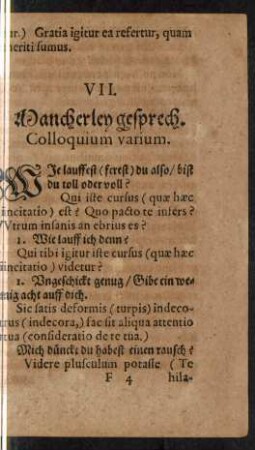 ur.) Gratia igitur ea refertur, quam
neriti sumus.
VII.
Mancherley gesprech.
Colloquium varium.
WIe lauffest (ferest) du also / bist
du toll oder voll?
Qui iste cursus (quæ hæc
incitatio) est? Quo pacto te infers?
VVtrum insanis an ebrius es?
1. Wie lauff ich denn?
Qui tibi igitur iste cursus (quæ hæc
incitatio) videtur?
1. Vngeschickt genug / Gibe ein we-
nig acht auff dich.
Sic satis deformis (turpis) indeco-
rus (indecora,) fac sit aliqua attentio
tua (consideratio de te tua.)
Mich dünckt du habest einen rausch?
Videre plusculum potasse (Te
F 4 hila-